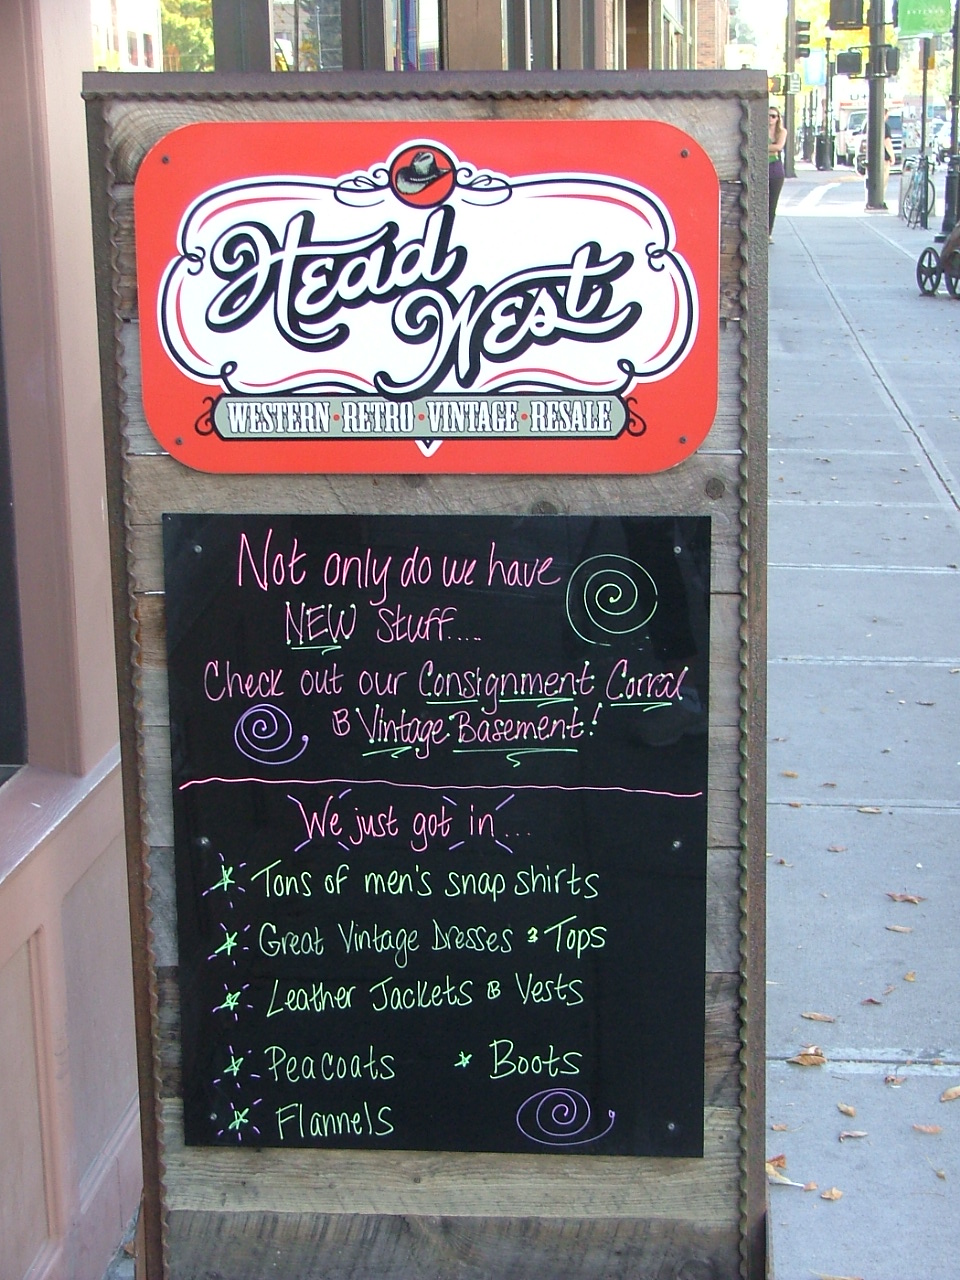 Head
West
WESTERN • RETRO • VINTAGE • RESALE
Not only do we have
NEW Stuff....
Check out our Consignment Corral
& Vintage Basement!
We just got in...
* Tons of men's snap shirts
* Great Vintage Dresses & Tops
* Leather Jackets & Vests
* Peacoats * Boots
* Flannels